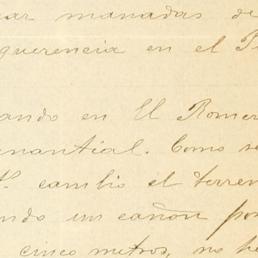 ar manadas de
querencia en el P
ando en El Romer
manantial. Como se
cambio el terren
ndo un cañon por
cinco metros, no he